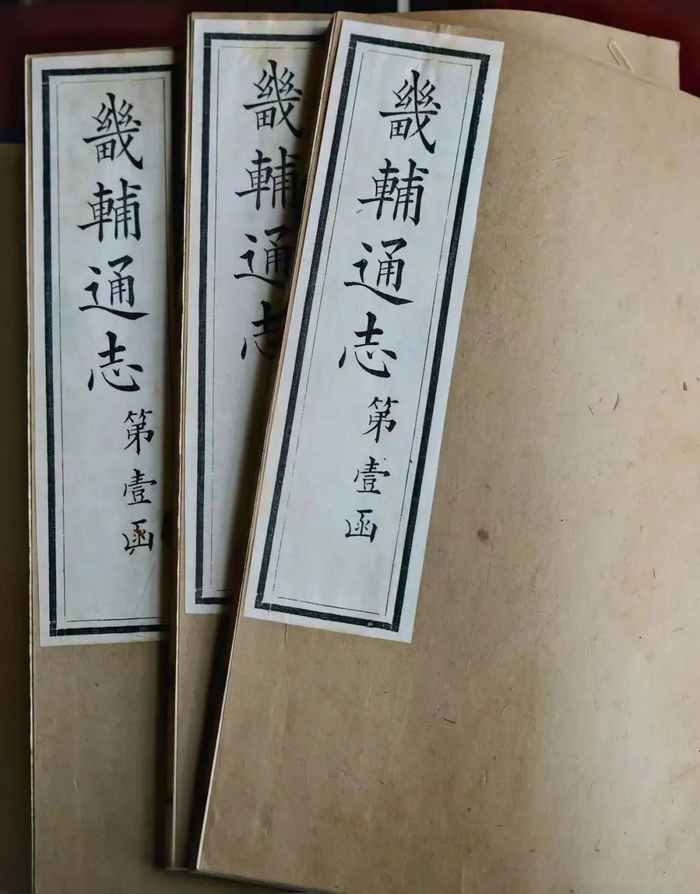 畿輔通志 第壹函
畿輔通志
畿輔通志 第壹函